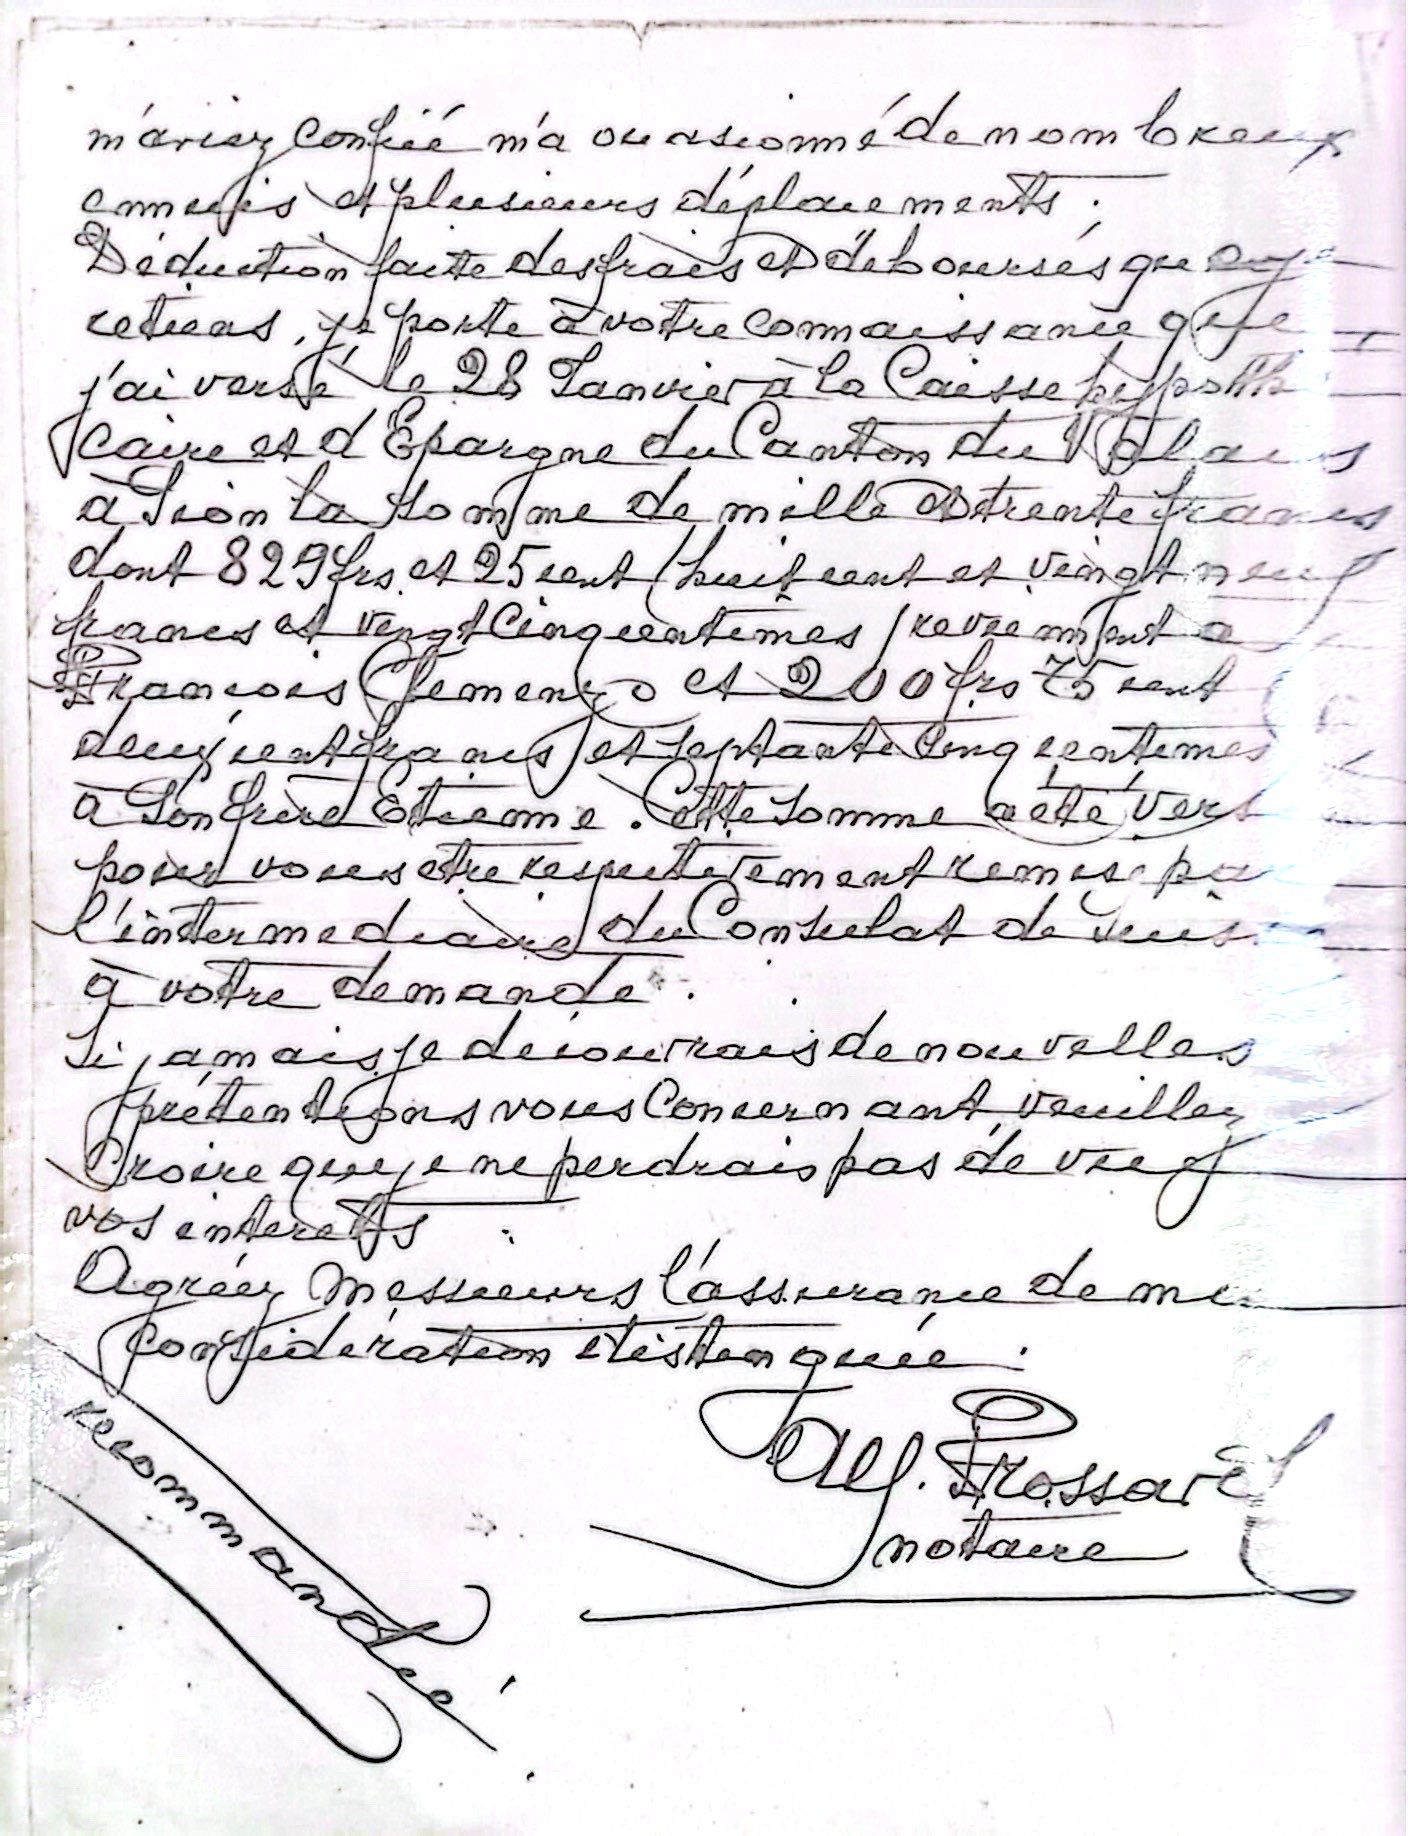 m'aviez confié m'a ocasionné de nombreux
ennuis et plusieurs déplacements.
Déduction faite des frais et déboursés que je
retiens, je porte à votre connaissance que
j'ai versé le 28 Janvier à la Caisse hypoth
caire et d'Epargne du Canton du Valais
à Sion la somme de mille et trente francs
dont 829 frs. et 25 cent (huit cent et vingt neuf
francs et vingt cinq centimes) reviennent a
François Clemenzo et 200 frs 75 cent
deux cent francs et septante cinq centimes
à Son frère Etienne. Cette somme a été vers
pour vous etre respectivement remise par
l'intermediaire du Consulat de Suis
à votre demande.
Si jamais je découvrais de nouvelles
prétentions vous Concernant, veuillez
Croire que je ne perdrais pas de vue
vos interets.
Agréez Messieurs l'assurance de ma
considération distinguée.
Alf. Frossard
notaire
recommandé